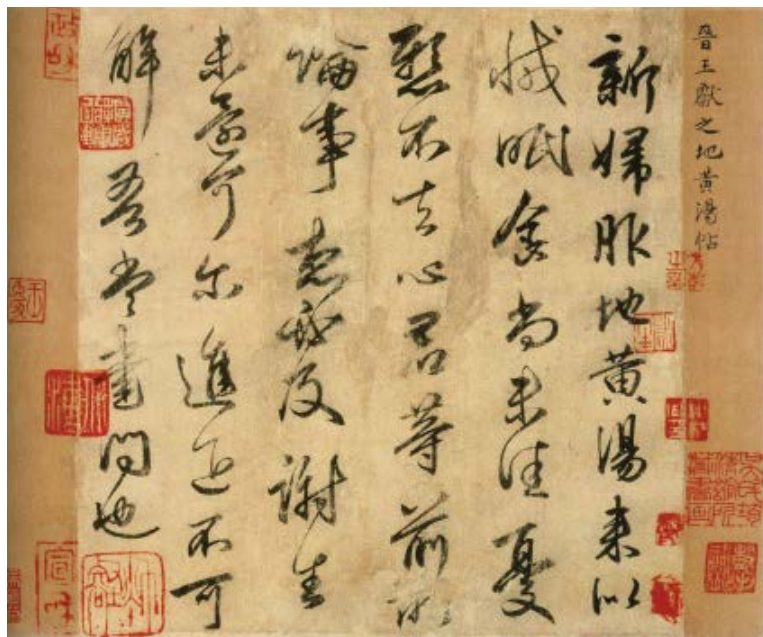 晉王獻之地黃湯帖
新婦服地黃湯來似
減眠食尚未佳憂
懸不去心君等前所
論事想必及謝生
未還可尓進退不可
解吾當書問也